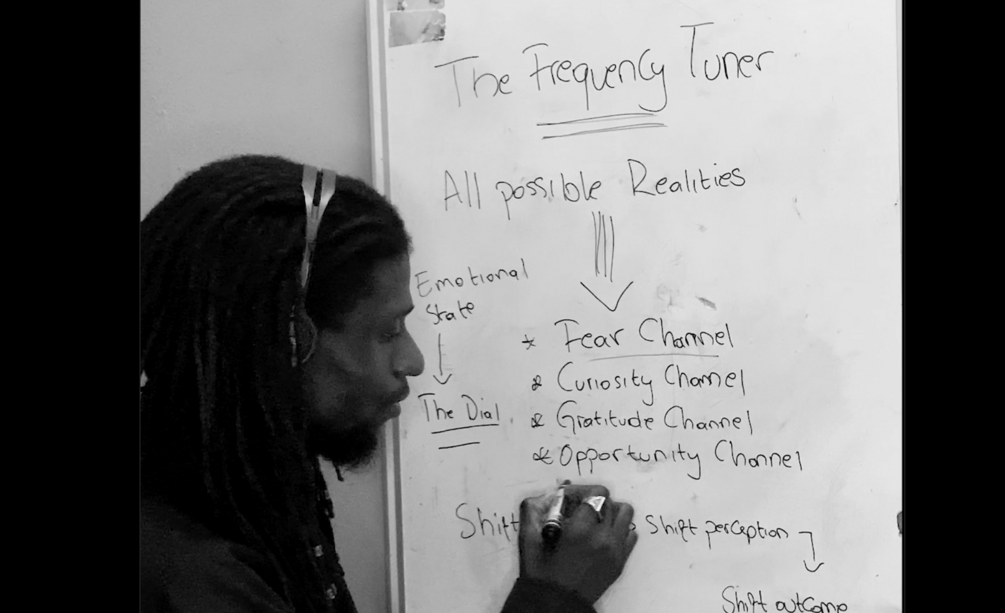 The Frequency Tuner
All possible Realities
Emotional
State
The Dial
* Fear Channel
* Curiosity Channel
* Gratitude Channel
* Opportunity Channel
Shift Shift perception
Shift outcome